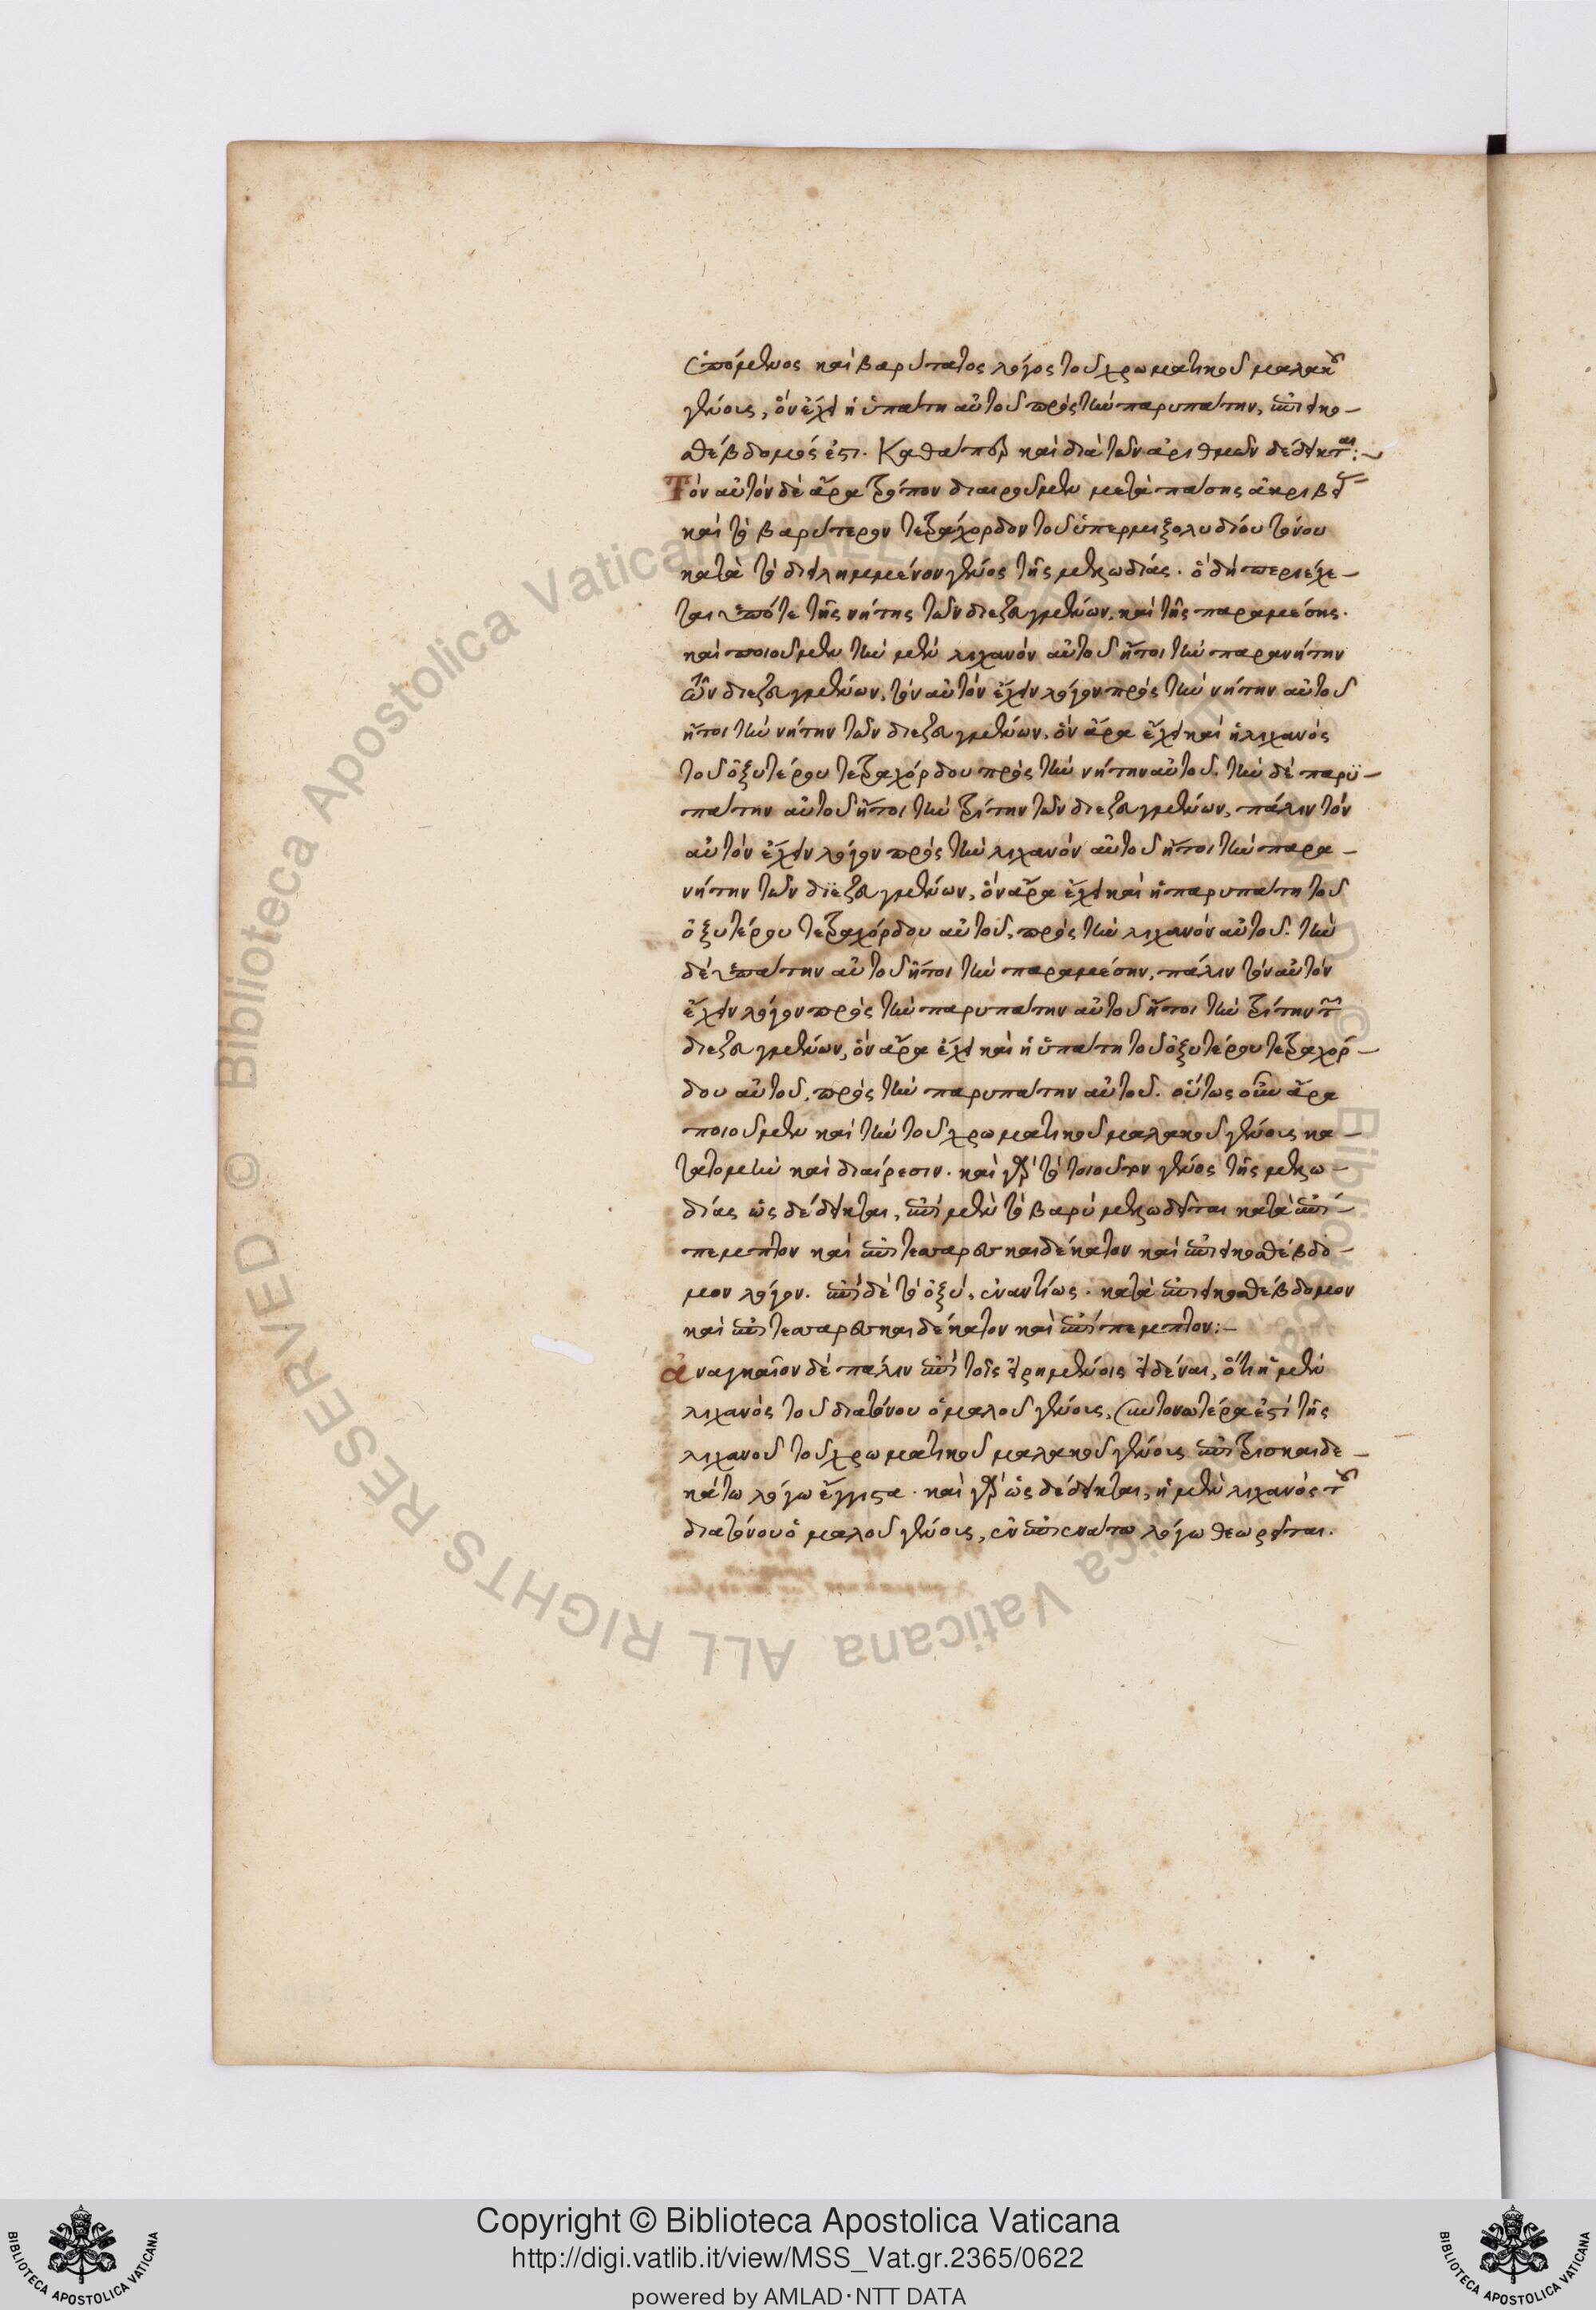 ἑπόμενος καὶ βαρύτατος λόγος τοῦ χρωματικοῦ μαλακοῦ
γένους, ὃν ἔχει ἡ ὑπάτη αὐτοῦ πρὸς τὴν παρυπάτην, ἐπιεικο-
σθέβδομός ἐστι. Καθάπερ καὶ διὰ τῶν ἀριθμῶν δέδεικται:~
Τὸν αὐτὸν δὲ ἄρα τρόπον διαιροῦμεν μετὰ πάσης ἀκριβείας
καὶ τὸ βαρύτερον τετράχορδον τοῦ ὑπερμιξολυδίου τόνου
κατὰ τὸ διειλημμένον γένος τῆς μελῳδίας. ὃ δὴ περιέχε-
ται ὑπό τε τῆς νήτης τῶν διεζευγμένων, καὶ τῆς παραμέσης.
καὶ ποιοῦμεν τὴν μὲν λιχανὸν αὐτοῦ ἤτοι τὴν παρανήτην
τῶν διεζευγμένων, τὸν αὐτὸν ἔχειν λόγον πρὸς τὴν νήτην αὐτοῦ
ἤτοι τὴν νήτην τῶν διεζευγμένων, ὃν ἄρα ἔχει καὶ ἡ λιχανὸς
τοῦ ὀξυτέρου τετραχόρδου πρὸς τὴν νήτην αὐτοῦ. τὴν δὲ παρϋ-
πάτην αὐτοῦ ἤτοι τὴν τρίτην τῶν διεζευγμένων, πάλιν τὸν
αὐτὸν ἔχειν λόγον πρὸς τὴν λιχανὸν αὐτοῦ ἤτοι τὴν παρα-
νήτην τῶν διεζευγμένων, ὃν ἄρα ἔχει καὶ ἡ παρυπάτη τοῦ
ὀξυτέρου τετραχόρδου αὐτοῦ, πρὸς τὴν λιχανὸν αὐτοῦ. τὴν
δὲ ὑπάτην αὐτοῦ ἤτοι τὴν παραμέσην, πάλιν τὸν αὐτὸν
ἔχειν λόγον πρὸς τὴν παρυπάτην αὐτοῦ ἤτοι τὴν τρίτην τῶν
διεζευγμένων, ὃν ἄρα ἔχει καὶ ἡ ὑπάτη τοῦ ὀξυτέρου τετραχόρ-
δου αὐτοῦ, πρὸς τὴν παρυπάτην αὐτοῦ. οὕτως οὖν ἄρα
ποιοῦμεν καὶ τὴν τοῦ χρωματικοῦ μαλακοῦ γένους κα-
τατομὴν καὶ διαίρεσιν. καὶ γὰρ τὸ τοιοῦτον γένος τῆς μελῳ-
δίας ὡς δέδεικται, ἐπὶ μὲν τὸ βαρὺ μελῳδεῖται κατὰ ἐπί-
πεμπτον καὶ ἐπιτεσσαρεσκαιδέκατον καὶ ἐπιεικοσθέβδο-
μον λόγον. ἐπὶ δὲ τὸ ὀξύ, ἐναντίως. κατὰ ἐπιεικοσθέβδομον
καὶ ἐπιτεσσαρεσκαιδέκατον καὶ ἐπίπεμπτον:-
ἀναγκαῖον δὲ πάλιν ἐπὶ τοῖς εἰρημένοις εἰδέναι, ὅτι ἡ μὲν
λιχανὸς τοῦ διατόνου ὁμαλοῦ γένους, συντονωτέρα ἐστὶ τῆς
λιχανοῦ τοῦ χρωματικοῦ μαλακοῦ γένους ἐπιτρισκαιδε-
κάτω λόγω ἔγγιστα. καὶ γὰρ ὡς δέδεικται, ἡ μὲν λιχανὸς τοῦ
διατόνου ὁμαλοῦ γένους, ἐν ἐπιενάτω λόγω θεωρεῖται.
Copyright © Biblioteca Apostolica Vaticana
http://digi.vatlib.it/view/MSS_Vat.gr.2365/0622
powered by AMLAD·NTT DATA